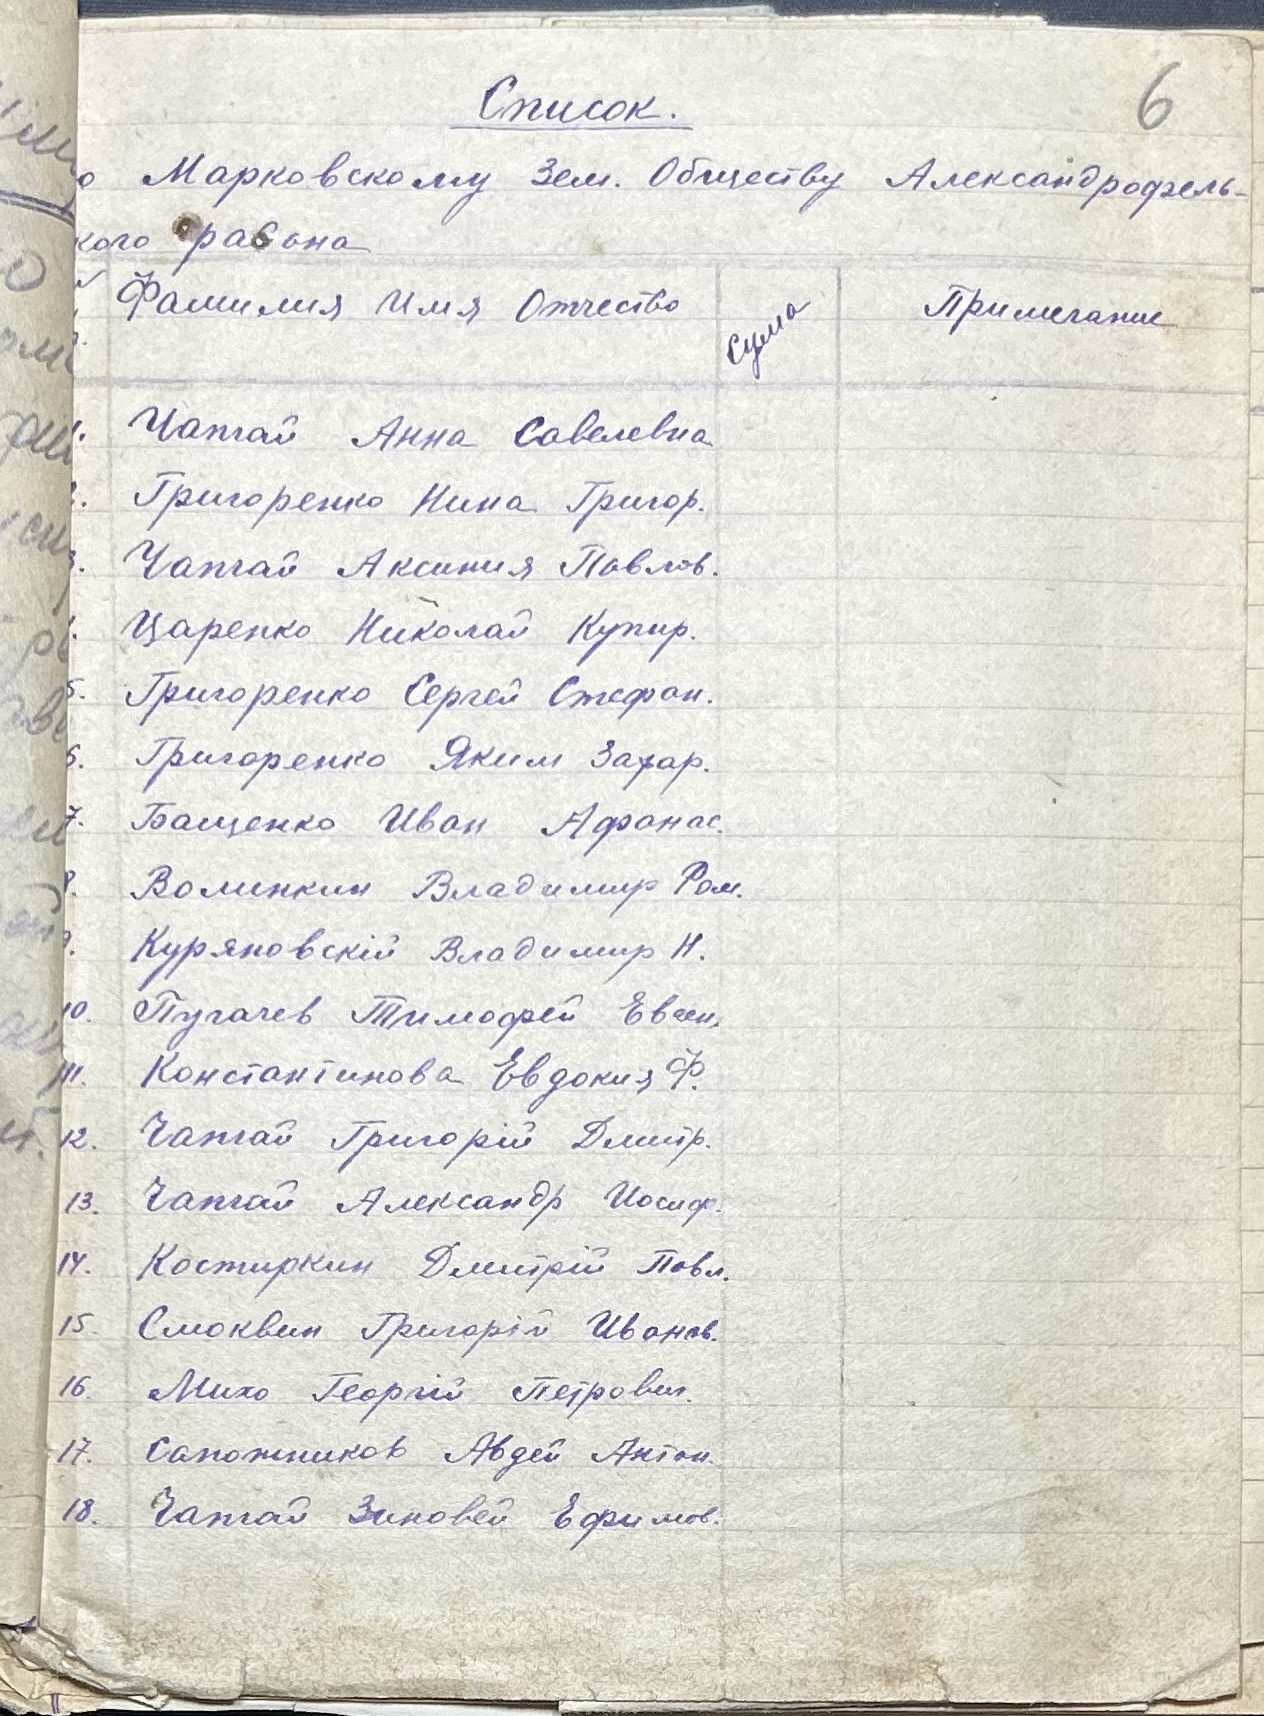 6
Список.
о Марковскому Зем. Обществу Александрофель-
кого района
Фамилия Имя Отчество Сума Примечание
1. Чапчай Анна Савелевна
2. Григоренко Нина Григор.
3. Чапчай Аксиния Павлов.
4. Царенко Николай Купир.
5. Григоренко Сергей Стефан.
6. Григоренко Яким Захар.
7. Бащенко Иван Афанас.
8. Волинкин Владимир Ром.
9. Куряновскій Владимир Н.
10. Пугачев Тимофей Евсен.
11. Константинова Евдокия Ф.
12. Чапчай Григорій Дмитр.
13. Чапчай Александр Иосиф.
14. Костиркин Дмитрій Павл.
15. Смоквин Григорій Иванов.
16. Михо Георгій Петрович.
17. Сапожников Авдей Антон.
18. Чапчай Зиновей Ефимов.